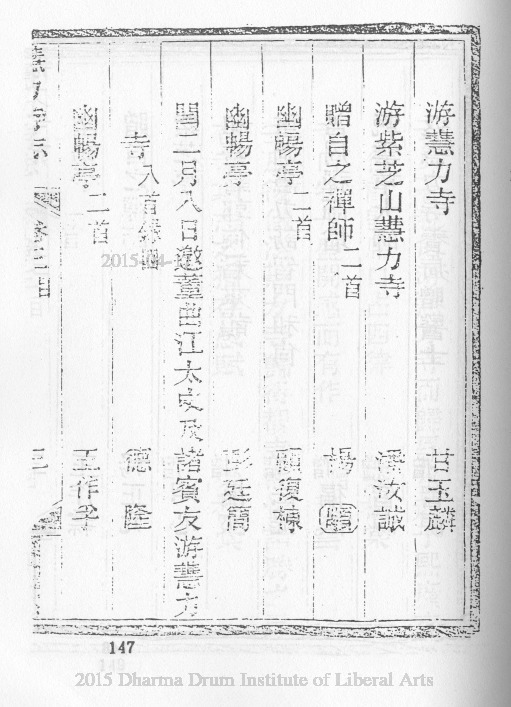 游慧力寺 甘玉麟
游紫芝山慧力寺 潘汝誠
贈自之禪師二首 楊
幽暢亭二首 顧復棟
幽暢亭 彭廷簡
閏二月八日邀董曲江太史及諸賓友游慧力
寺八首錄 德隆
幽暢亭二首 王作孚
慧力寺志 卷三目 三
2015-04-
147
2015 Dharma Drum Institute of Liberal Arts